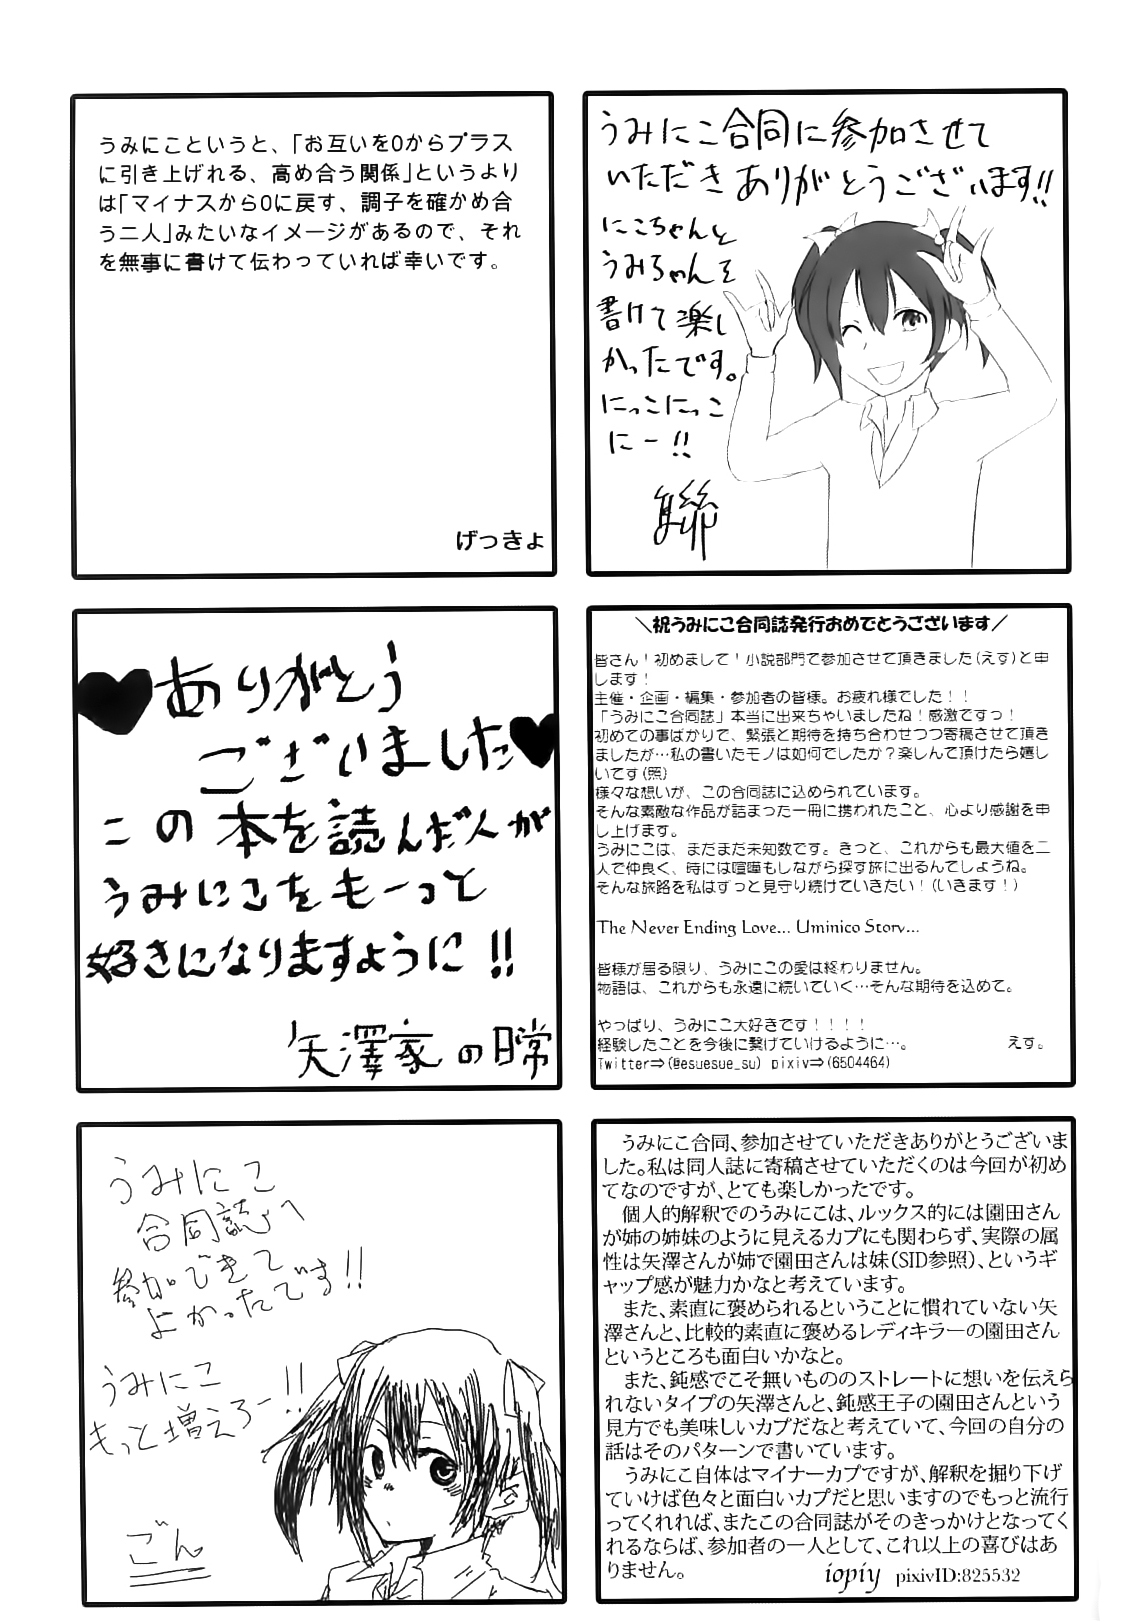 うみにこというと、「お互いを0からプラス
に引き上げれる、高め合う関係」というより
は「マイナスから0に戻す、調子を確かめ合
う二人」みたいなイメージがあるので、それ
を無事に書けて伝わっていれば幸いです。
げっきょ
うみにこ合同に参加させて
いただきありがとうございます!!
にこちゃんと
うみちゃんを
書けて楽し
かったです。
にっこにっこ
にー!!
♥ありがとう
ございました♥
この本を読んだ人が
うみにこをもーっと
好きになりますように!!
矢澤家の日常
＼祝うみにこ合同誌発行おめでとうございます／
皆さん！初めまして！小説部門で参加させて頂きました(えす)と申
します！
主催・企画・編集・参加者の皆様。お疲れ様でした！！
「うみにこ合同誌」本当に出来ちゃいましたね！感激ですっ！
初めての事ばかりで、緊張と期待を持ち合わせつつ寄稿させて頂き
ましたが…私の書いたモノは如何でしたか？楽しんで頂けたら嬉し
いです(照)
様々な想いが、この合同誌に込められています。
そんな素敵な作品が詰まった一冊に携われたこと、心より感謝を申
し上げます。
うみにこは、まだまだ未知数です。きっと、これからも最大値を二
人で仲良く、時には喧嘩もしながら探す旅に出るんでしょうね。
そんな旅路を私はずっと見守り続けていきたい！(いきます！)
The Never Ending Love... Uminico Story...
皆様が居る限り、うみにこの愛は終わりません。
物語は、これからも永遠に続いていく…そんな期待を込めて。
やっぱり、うみにこ大好きです！！！！
経験したことを今後に繋げていけるように…。 えす。
Twitter⇒(@esuesue_su) pixiv⇒(6504464)
うみにこ
合同誌へ
参加できて
よかったです!!
うみにこ
もっと増えろー!!
ごん
うみにこ合同、参加させていただきありがとうございま
した。私は同人誌に寄稿させていただくのは今回が初め
てなのですが、とても楽しかったです。
個人的解釈でのうみにこは、ルックス的には園田さん
が姉の姉妹のように見えるカプにも関わらず、実際の属
性は矢澤さんが姉で園田さんは妹(SID参照)、というギ
ャップ感が魅力かなと考えています。
また、素直に褒められるということに慣れていない矢
澤さんと、比較的素直に褒めるレディキラーの園田さん
というところも面白いかなと。
また、鈍感でこそ無いもののストレートに想いを伝えら
れないタイプの矢澤さんと、鈍感王子の園田さんという
見方でも美味しいカプだなと考えていて、今回の自分の
話はそのパターンで書いています。
うみにこ自体はマイナーカプですが、解釈を掘り下げ
ていけば色々と面白いカプだと思いますのでもっと流行
ってくれれば、またこの合同誌がそのきっかけとなってく
れるならば、参加者の一人として、これ以上の喜びはあ
りません。 iopiy pixivID:825532